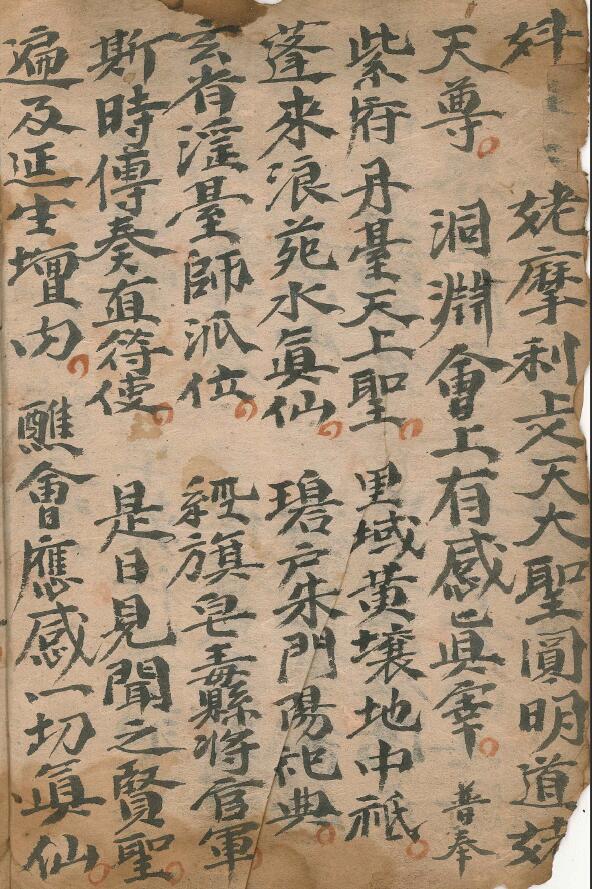 姥摩利攴天大聖圓明道姥
天尊 洞淵會上有感眞宰 普奉
紫府丹臺天上聖 里域黄壤地中祇
蓬來浪苑水眞仙 碧戶朱門陽祀典
玄省滛臺師派位 旗皂纛縣将官軍
斯時傳奏直符使 是日見聞之賢聖
遍及延生壇内 醮會應感一切眞仙